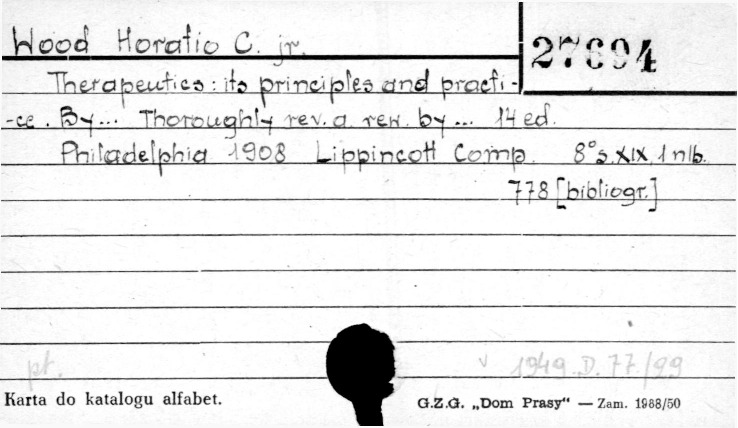 Wood Horatio C. jr.
27694
Therapeutics: its principles and practi-
-ce. By... Thoroughly rev. a. rew. by... 14 ed.
Philadelphia 1908 Lippincott Comp. 8° s. XIX, 1 nlb.
778 [bibliogr.]
pt. v 1949. D. 77/99
Karta do katalogu alfabet. G.Z.G. „Dom Prasy" — Zam. 1988/50